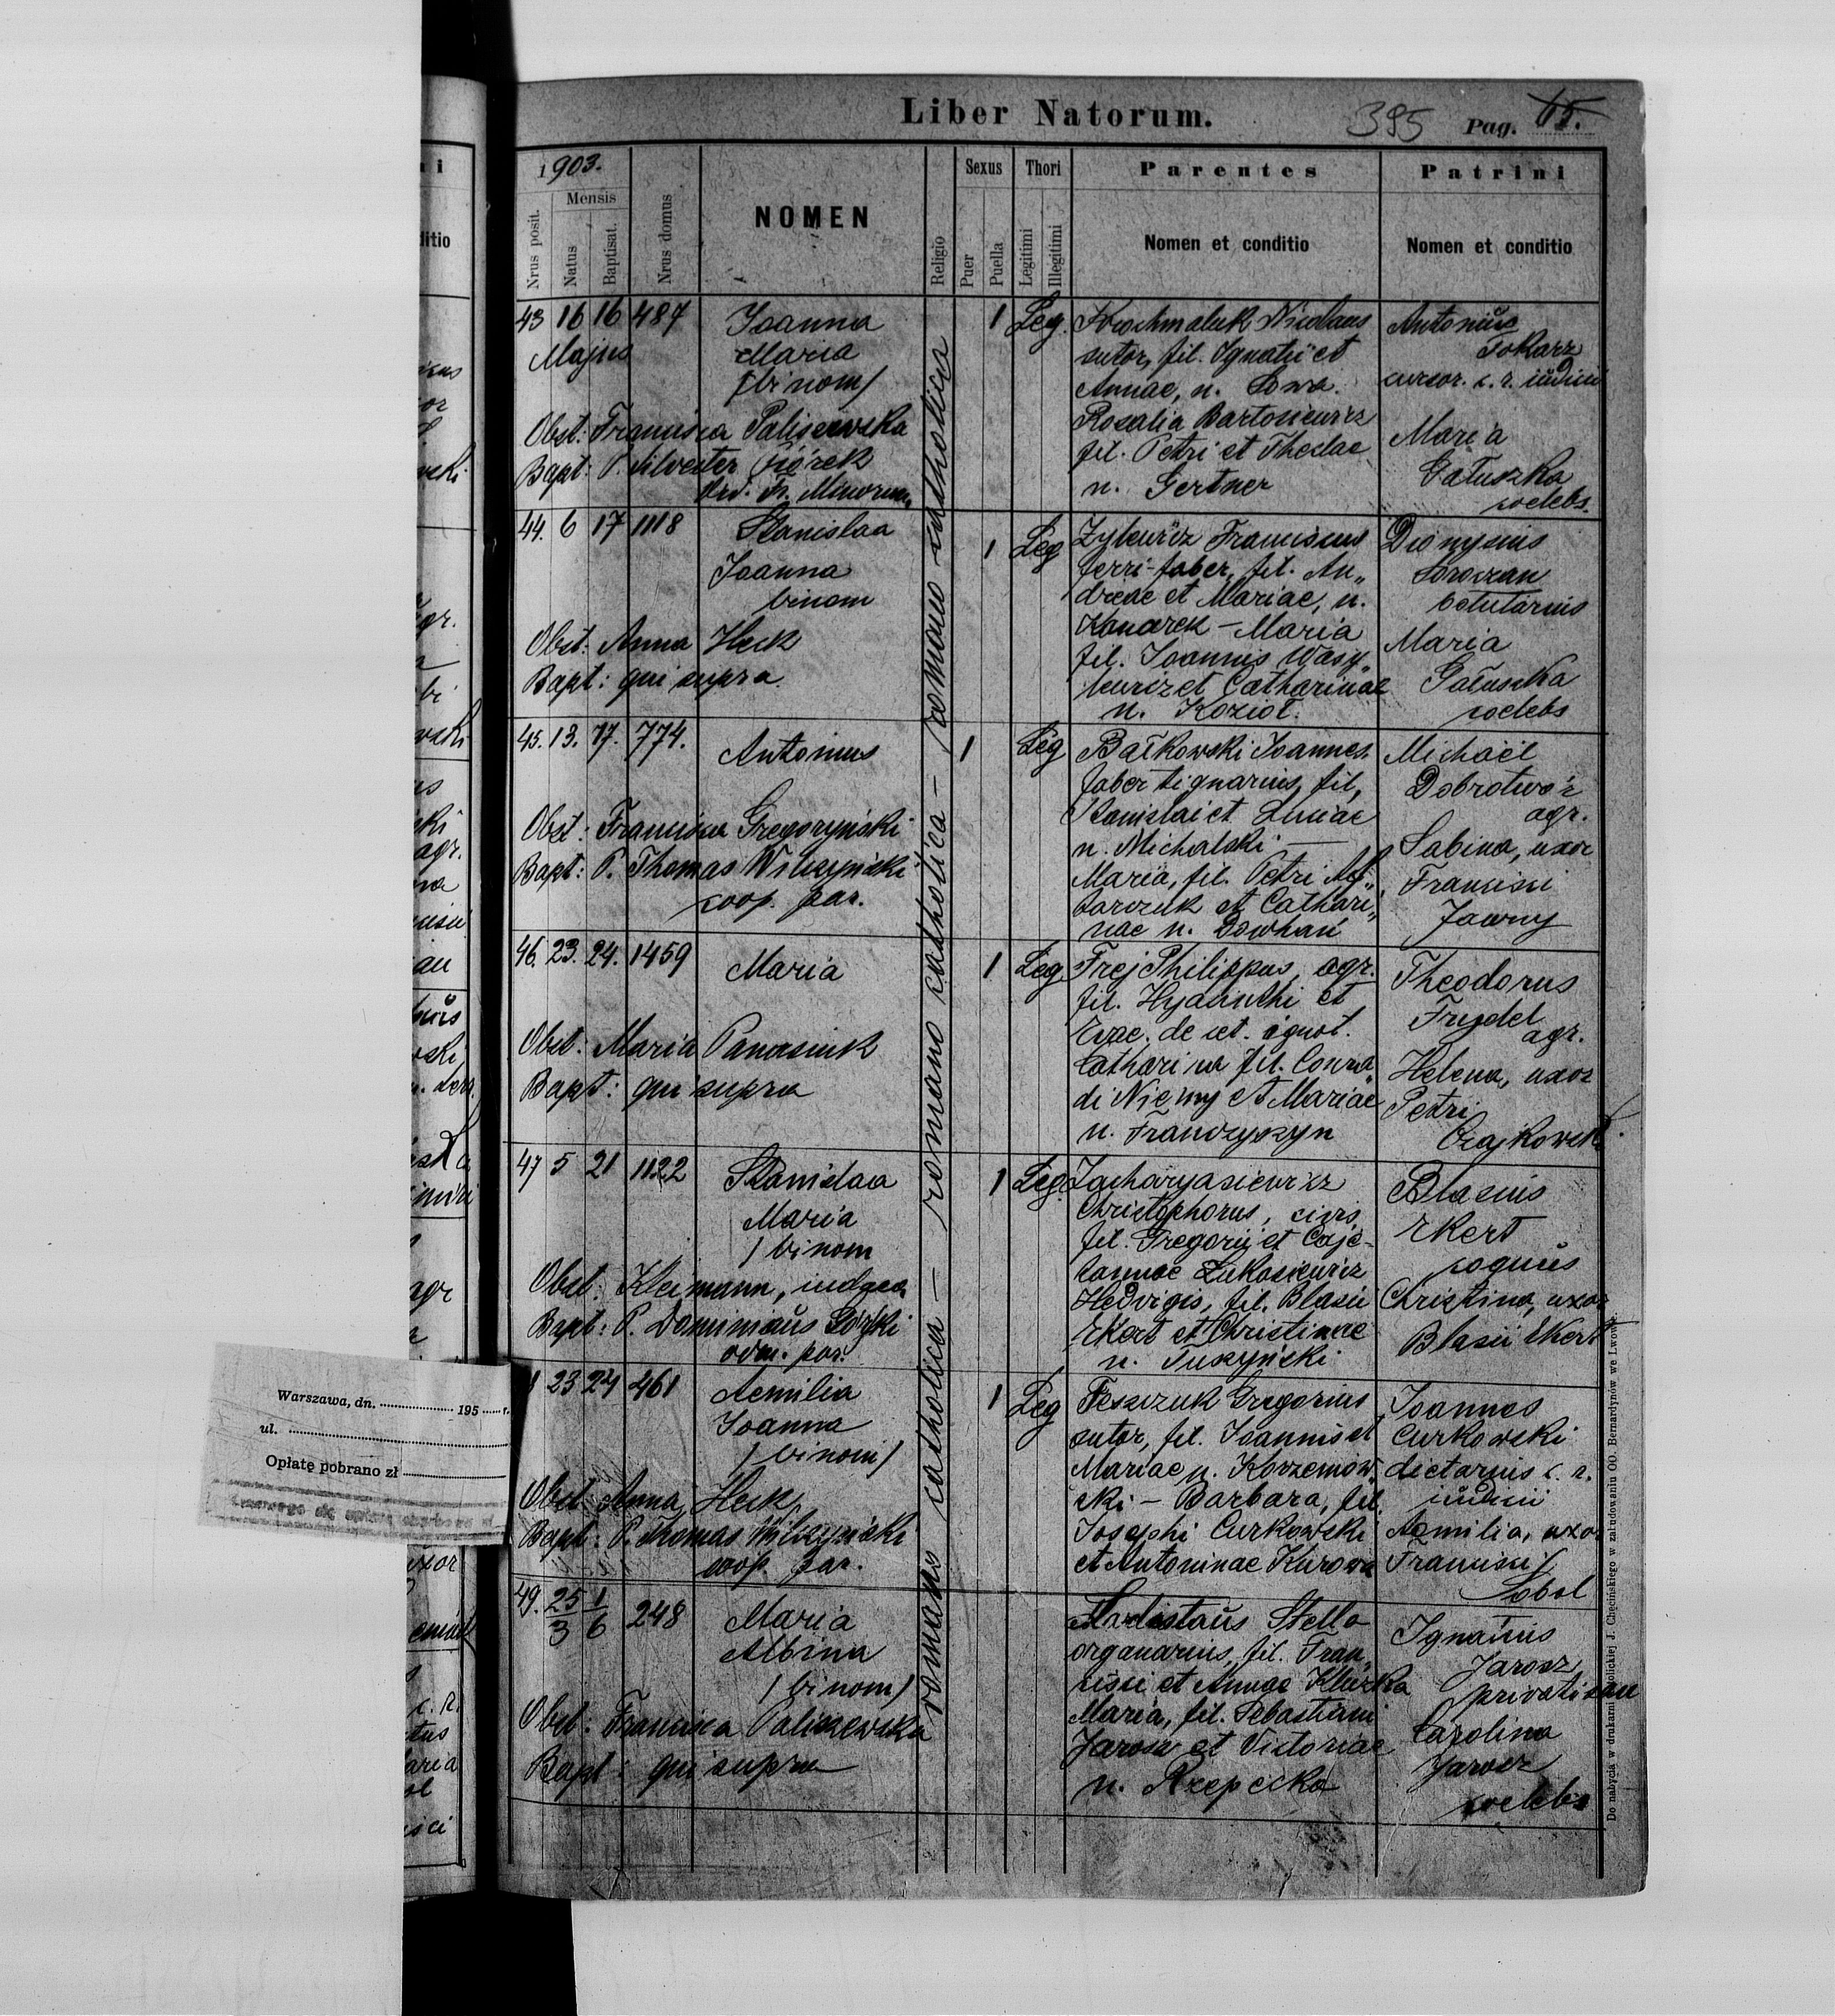 Liber Natorum.
395 Pag. 65.
1903.
Mensis
Nrus posit.
Natus
Baptisat.
Nrus domus
NOMEN
Religio
Sexus
Puer
Puella
Thori
Legitimi
Illegitimi
Parentes
Nomen et conditio
Patrini
Nomen et conditio
romano catholica — romano catholica — romano catholica
43 16 16 487
Majus
Joanna
Maria
(binom)
Obst: Francisca Paliszewska
Bapt: P. Silvester Fiórek
Ord. Fr. Minorum
1 Leg.
Nicolaus
sutor, fil. Ignatii et
Annae, n. Sowa.
Rosalia Bartosiewicz
fil. Petri et Theclae
n. Gertner
Antonius
Tokarz
cursor. c. r. iudicii
Maria
Gałuszka
coelebs.
44. 6 17 1118
Stanislaa
Joanna
binom
Obst: Anna Heck
Bapt: qui supra.
1 Leg
Franciscus
ferri-faber, fil. An„
dreae et Mariae, n.
Konarek — Maria
fil. Joannis Wasy„
et Catharinae
n. Kozioł.
Dionysius
Maria
Gałuszka
coelebs
45. 13. 17. 774.
Antonius
Obst: Francisca Gregoryński
Bapt: P. Thomas Wilczyński
coop. par.
1 Leg
Bałkowski Joannes
faber tignarius, fil,
Stanislai et Luciae
n. Michalski —
Maria, fil. Petri
et Cathari„
nae n. Dowhań
Michaël
Dobrotwór
agr.
Sabina, uxor
Francisci
Jawny
46. 23. 24. 1459
Maria
Obst: Maria Panasiuk
Bapt: qui supra
1 Leg
Frej Philippus, agr.
fil. Hyacinthi et
Evae, de cet. ignot.
Catharina fil. Conra„
di Niemy et Mariae
n. Franczyszyn
Theodorus
Frydel
agr.
Helena, uxor
Petri
Czajkowski
47 5 21 1122
Stanislaa
Maria
(binom
Obst: Kleimann, iudaea
Bapt: P. Dominicus
adm. par.
1 Leg.
Zacharyasiewicz
Christophorus, civis,
fil. Gregorii et Caje-
tannae Łukasiewicz
Hedvigis, fil. Blasii
Ekert et Christinae
n. Tuszyński
Blasius
Ekert
coquus
Christina, uxor
Blasii Ekert
23 24 461
Aemilia
Joanna
(binom)
Obst: Anna Heck
Bapt: P. Thomas Wilczyński
coop. par.
1 Leg
Feszczuk Gregorius
sutor, fil. Joannis et
Mariae n. Korzeniow„
ski — Barbara, fil.
Josephi Curkowski
et Antoninae Kurowa
Joannes
Curkowski
dietarius c. r.
iudicii
Aemilia, uxor
Francisci
Sobol
49. 25/3 1/6 248
Maria
Albina
(binom)
Obst: Francisca Paliszewska
Bapt: qui supra
Ladislaus Stella
organarius, fil. Fran„
cisci et Annae
Maria, fil. Sebastiani
Jarosz et Victoriae
n. Rzepecka
Ignatius
Jarosz
Carolina
Jarosz
coelebs
Do nabycia w drukarni katolickiej J. Chęcińskiego w zabudowaniu OO. Bernardynów we Lwowie.
Warszawa, dn. .................... 195 ...... r.
ul. ............................................
Opłatę pobrano zł ..............................